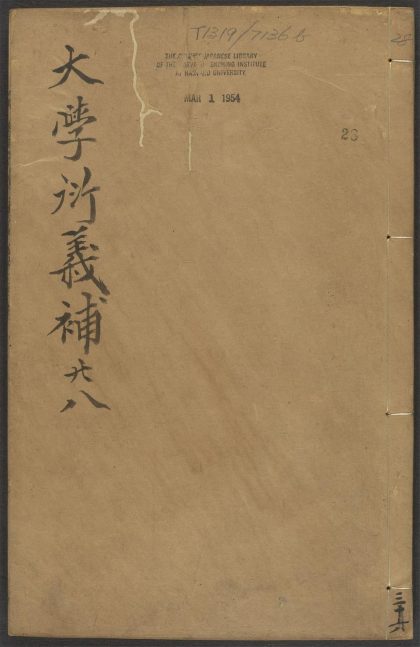 T1319/7136b
28
THE CHINESE-JAPANESE LIBRARY
OF THE HARVARD-YENCHING INSTITUTE
AT HARVARD UNIVERSITY
MAR 1 1954
28
大學衍義補廿八
三十六